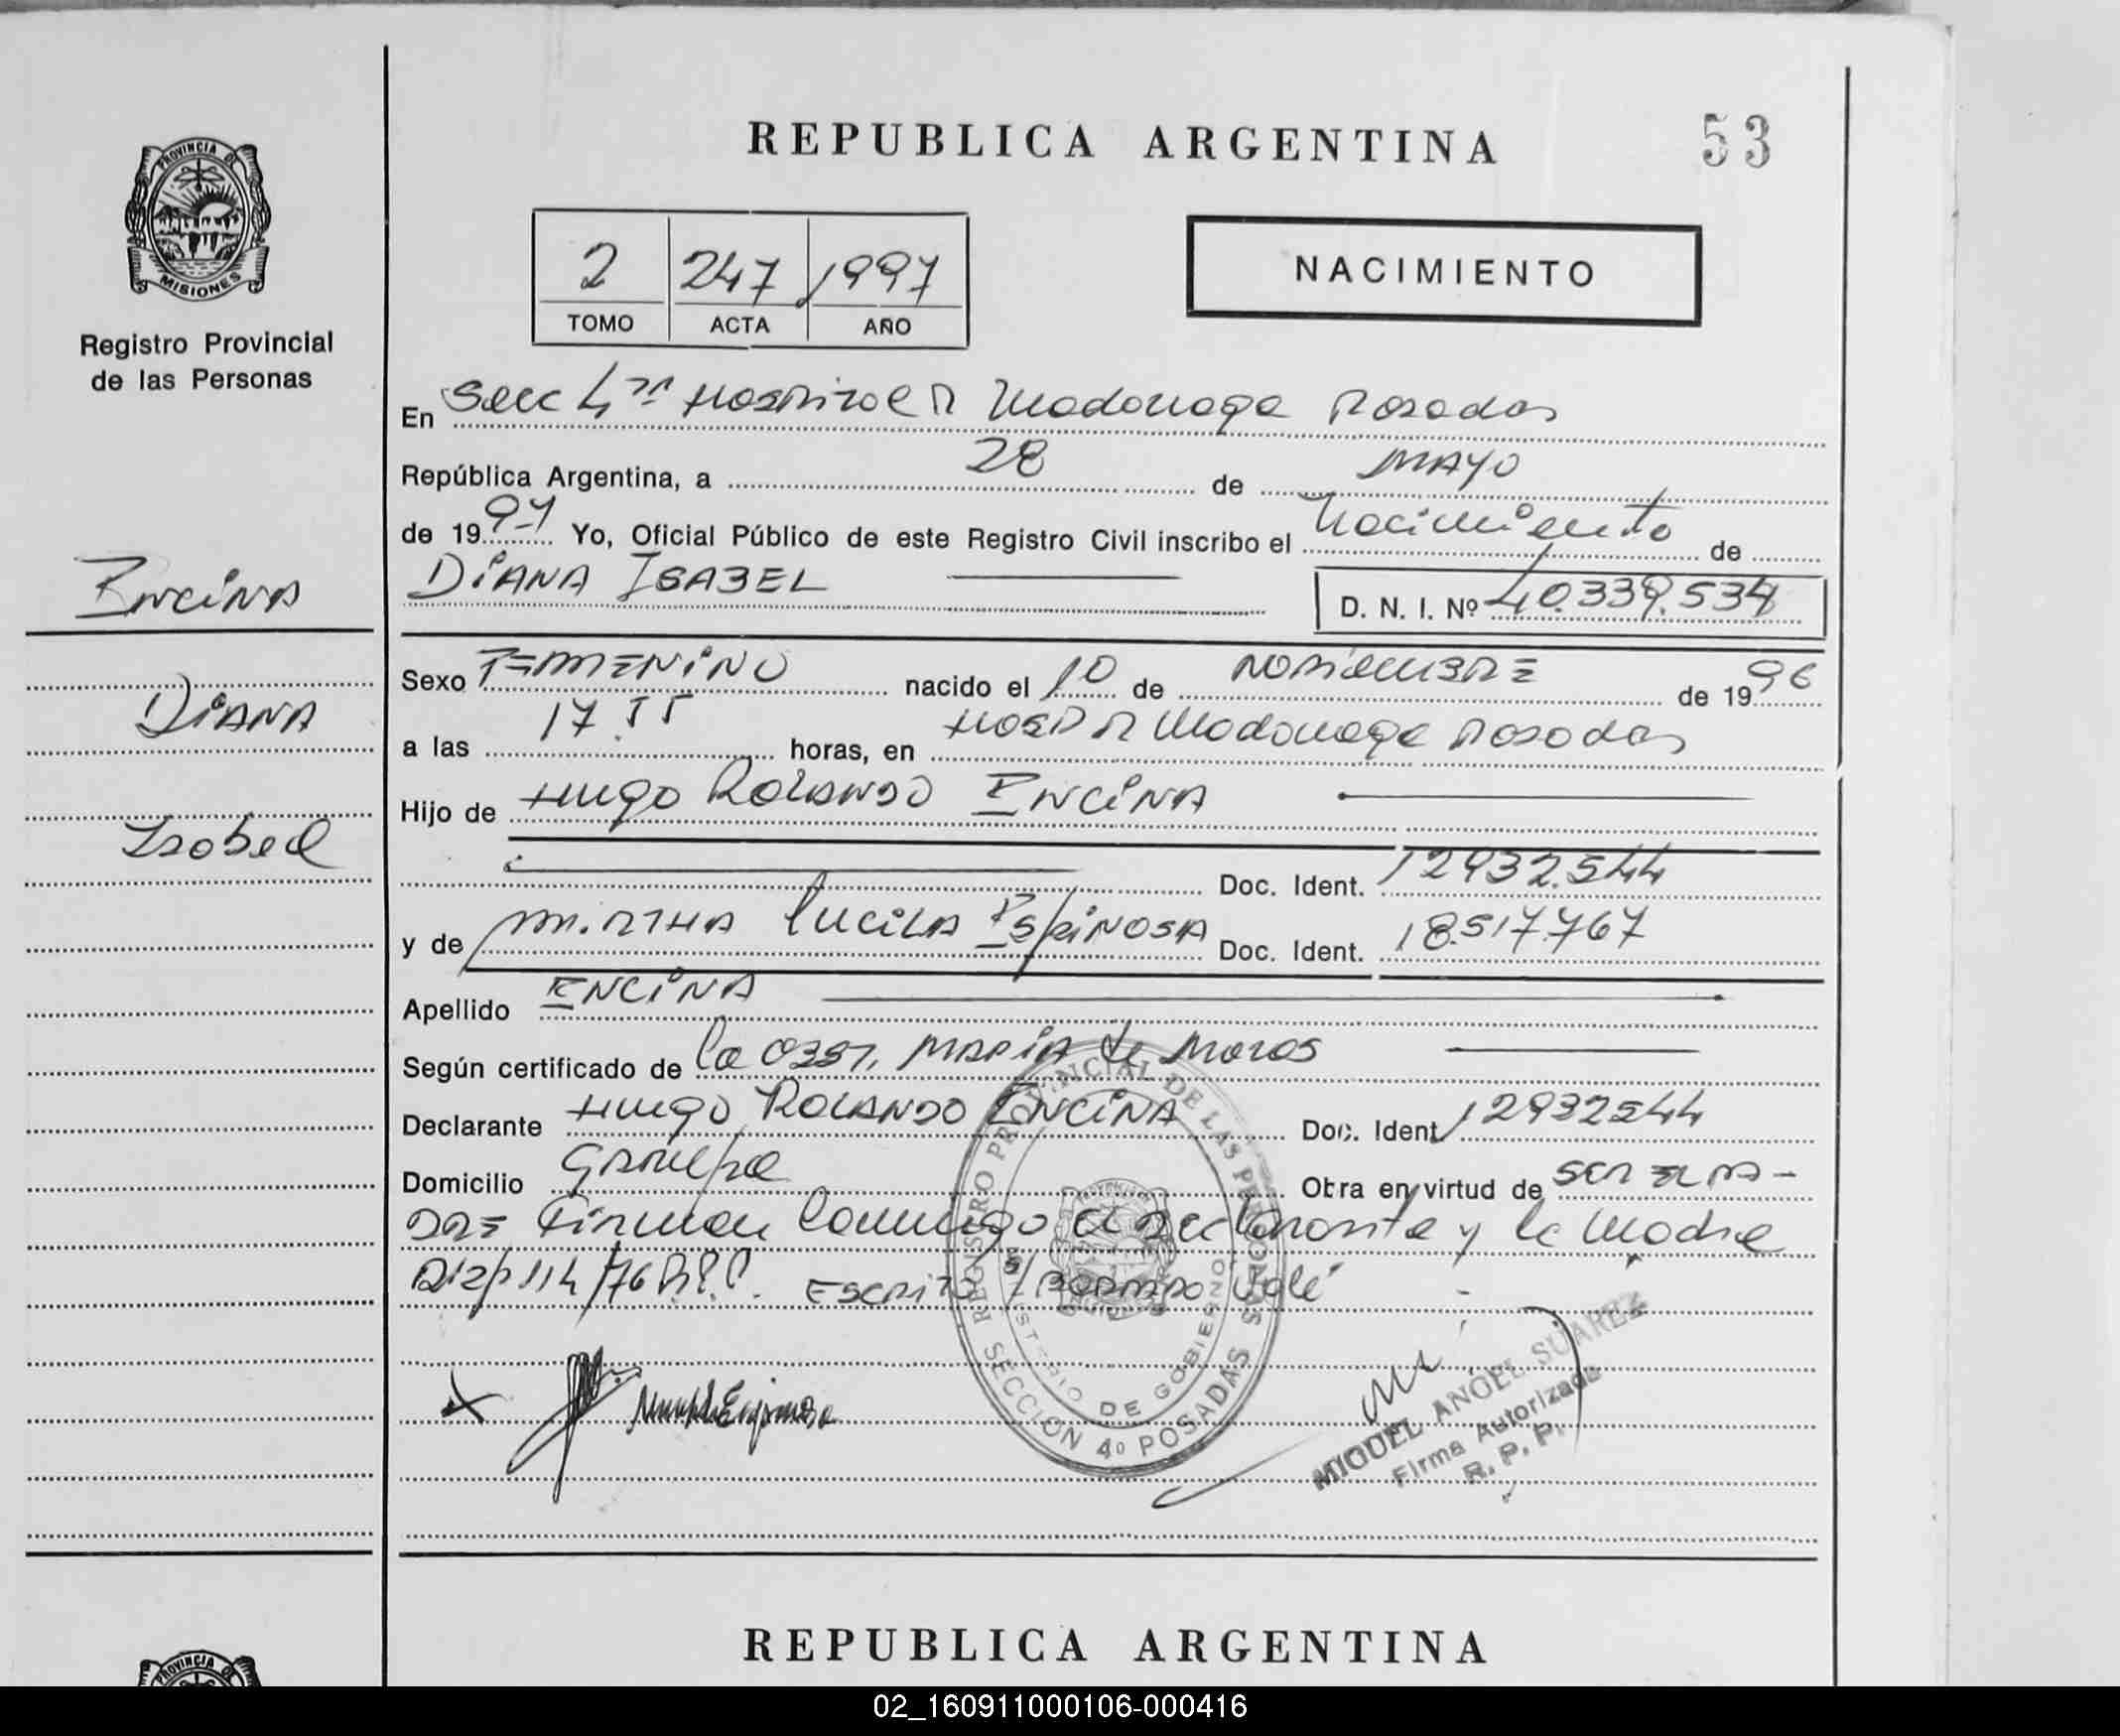 REPUBLICA ARGENTINA
53
PROVINCIA DE
MISIONES
Registro Provincial
de las Personas
2 247 1997
TOMO ACTA AÑO
NACIMIENTO
En Secc 4ta Hospital R Madariaga Posadas
República Argentina, a 28 de MAYO
de 1997 Yo, Oficial Público de este Registro Civil inscribo el nacimiento de
DiANA ISABEL D. N. I. Nº 40.339.534
ENCiNA
DiANA
Isabel
Sexo FEMENiNO nacido el 10 de NOViEMBRE de 1996
a las 17.55 horas, en Hosp R Madariaga Posadas
Hijo de Hugo ROLANDO ENCiNA
Doc. Ident. 12932.544
y de MiRTHA LUCiLA ESPiNOSA Doc. Ident. 18.517.767
Apellido ENCiNA
Según certificado de la OBST. MARiA de
Declarante Hugo ROLANDO ENCiNA Doc. Ident 12932544
Domicilio Garupa Obra en virtud de ser el PA-
DRE Firman conmigo el declarante y la madre
114/76 R.P.P. ESCRiTO S/BORRADO Vale
REGISTRO PROVINCIAL DE LAS PERSONAS
MINISTERIO DE GOBIERNO
SECCION 4º POSADAS
MIGUEL ANGEL SUAREZ
Firma Autorizada
R. P. P.
REPUBLICA ARGENTINA
PROVINCIA DE
02_160911000106-000416